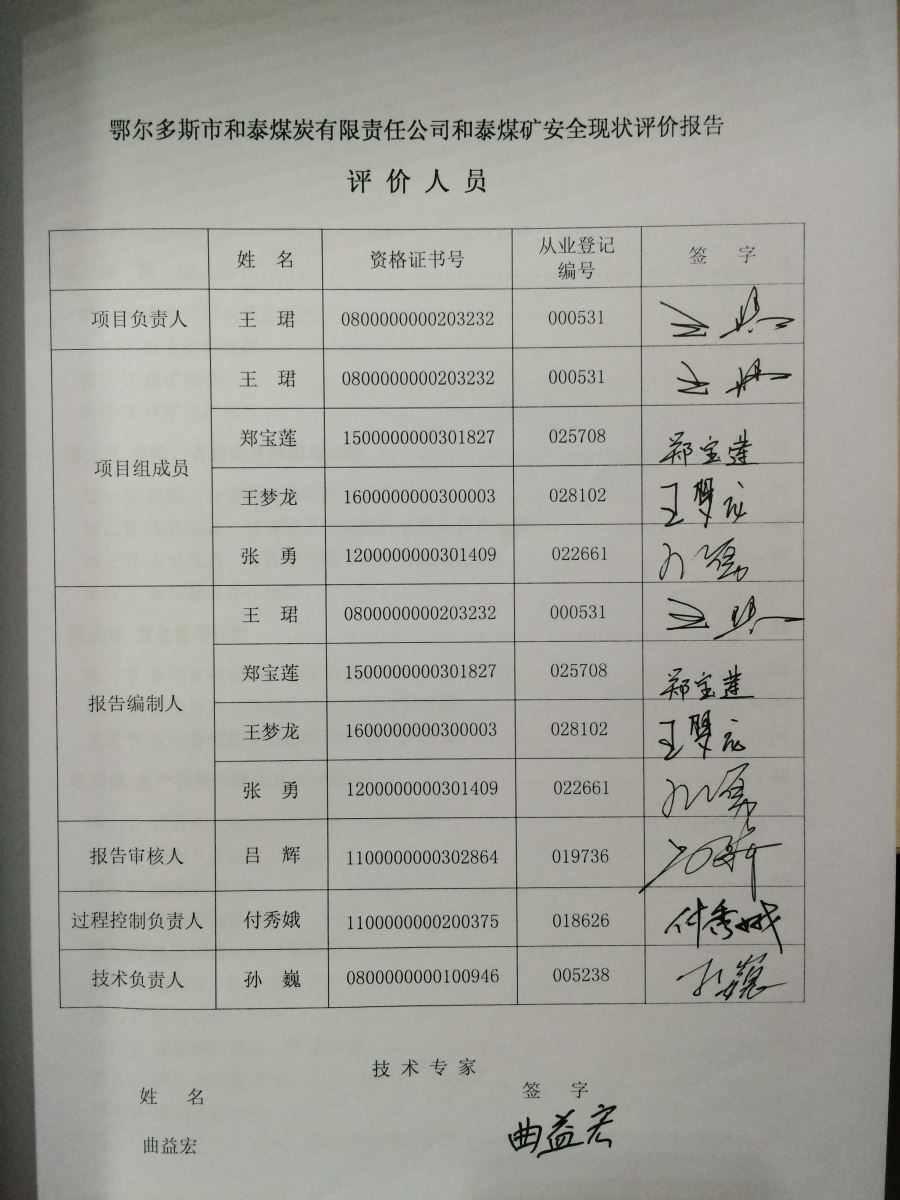 鄂尔多斯市和泰煤炭有限责任公司和泰煤矿安全现状评价报告
评价人员
姓 名 资格证书号 从业登记编号 签 字
项目负责人 王 珺 0800000000203232 000531
项目组成员 王 珺 0800000000203232 000531
郑宝莲 1500000000301827 025708 郑宝莲
王梦龙 1600000000300003 028102 王梦龙
张 勇 1200000000301409 022661
报告编制人 王 珺 0800000000203232 000531
郑宝莲 1500000000301827 025708 郑宝莲
王梦龙 1600000000300003 028102 王梦龙
张 勇 1200000000301409 022661
报告审核人 吕 辉 1100000000302864 019736
过程控制负责人 付秀娥 1100000000200375 018626 付秀娥
技术负责人 孙 巍 0800000000100946 005238 孙巍
技术专家
姓 名 签 字
曲益宏 曲益宏